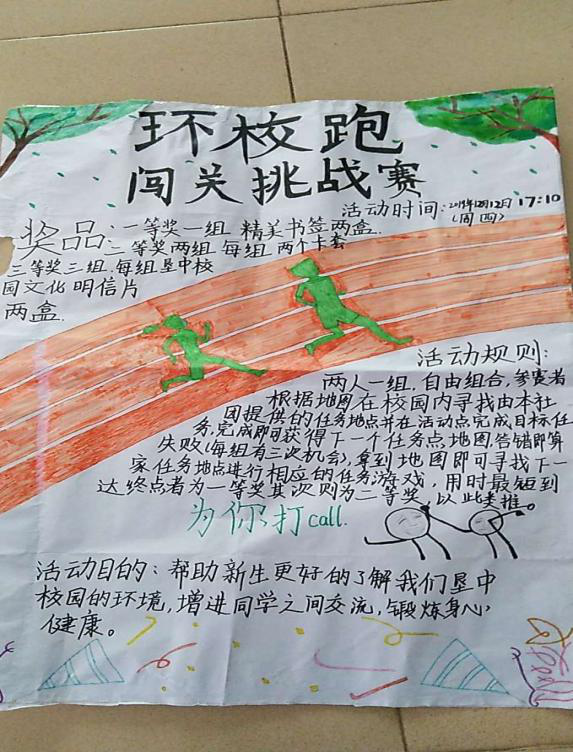 环校跑
闯关挑战赛
活动时间:2019年12月12日 17:10
(周四)
奖品:一等奖一组 精美书签两盒.
二等奖两组.每组.两个卡套
三等奖三组.每组垦中校
园文化明信片
两盒.
活动规则:
两人一组.自由组合,参赛者
根据地图在校园内寻找由本社
团提供的任务地点并在活动点完成目标任
务,完成即可获得下一个任务点地图,答错即算
失败(每组有三次机会),拿到地图即可寻找下一
家任务地点进行相应的任务游戏,用时最短到
达终点者为一等奖其次则为二等奖,以此类推。
为你打call.
活动目的:帮助新生更好的了解我们垦中
校园的环境,增进同学之间交流,锻炼身心
健康。